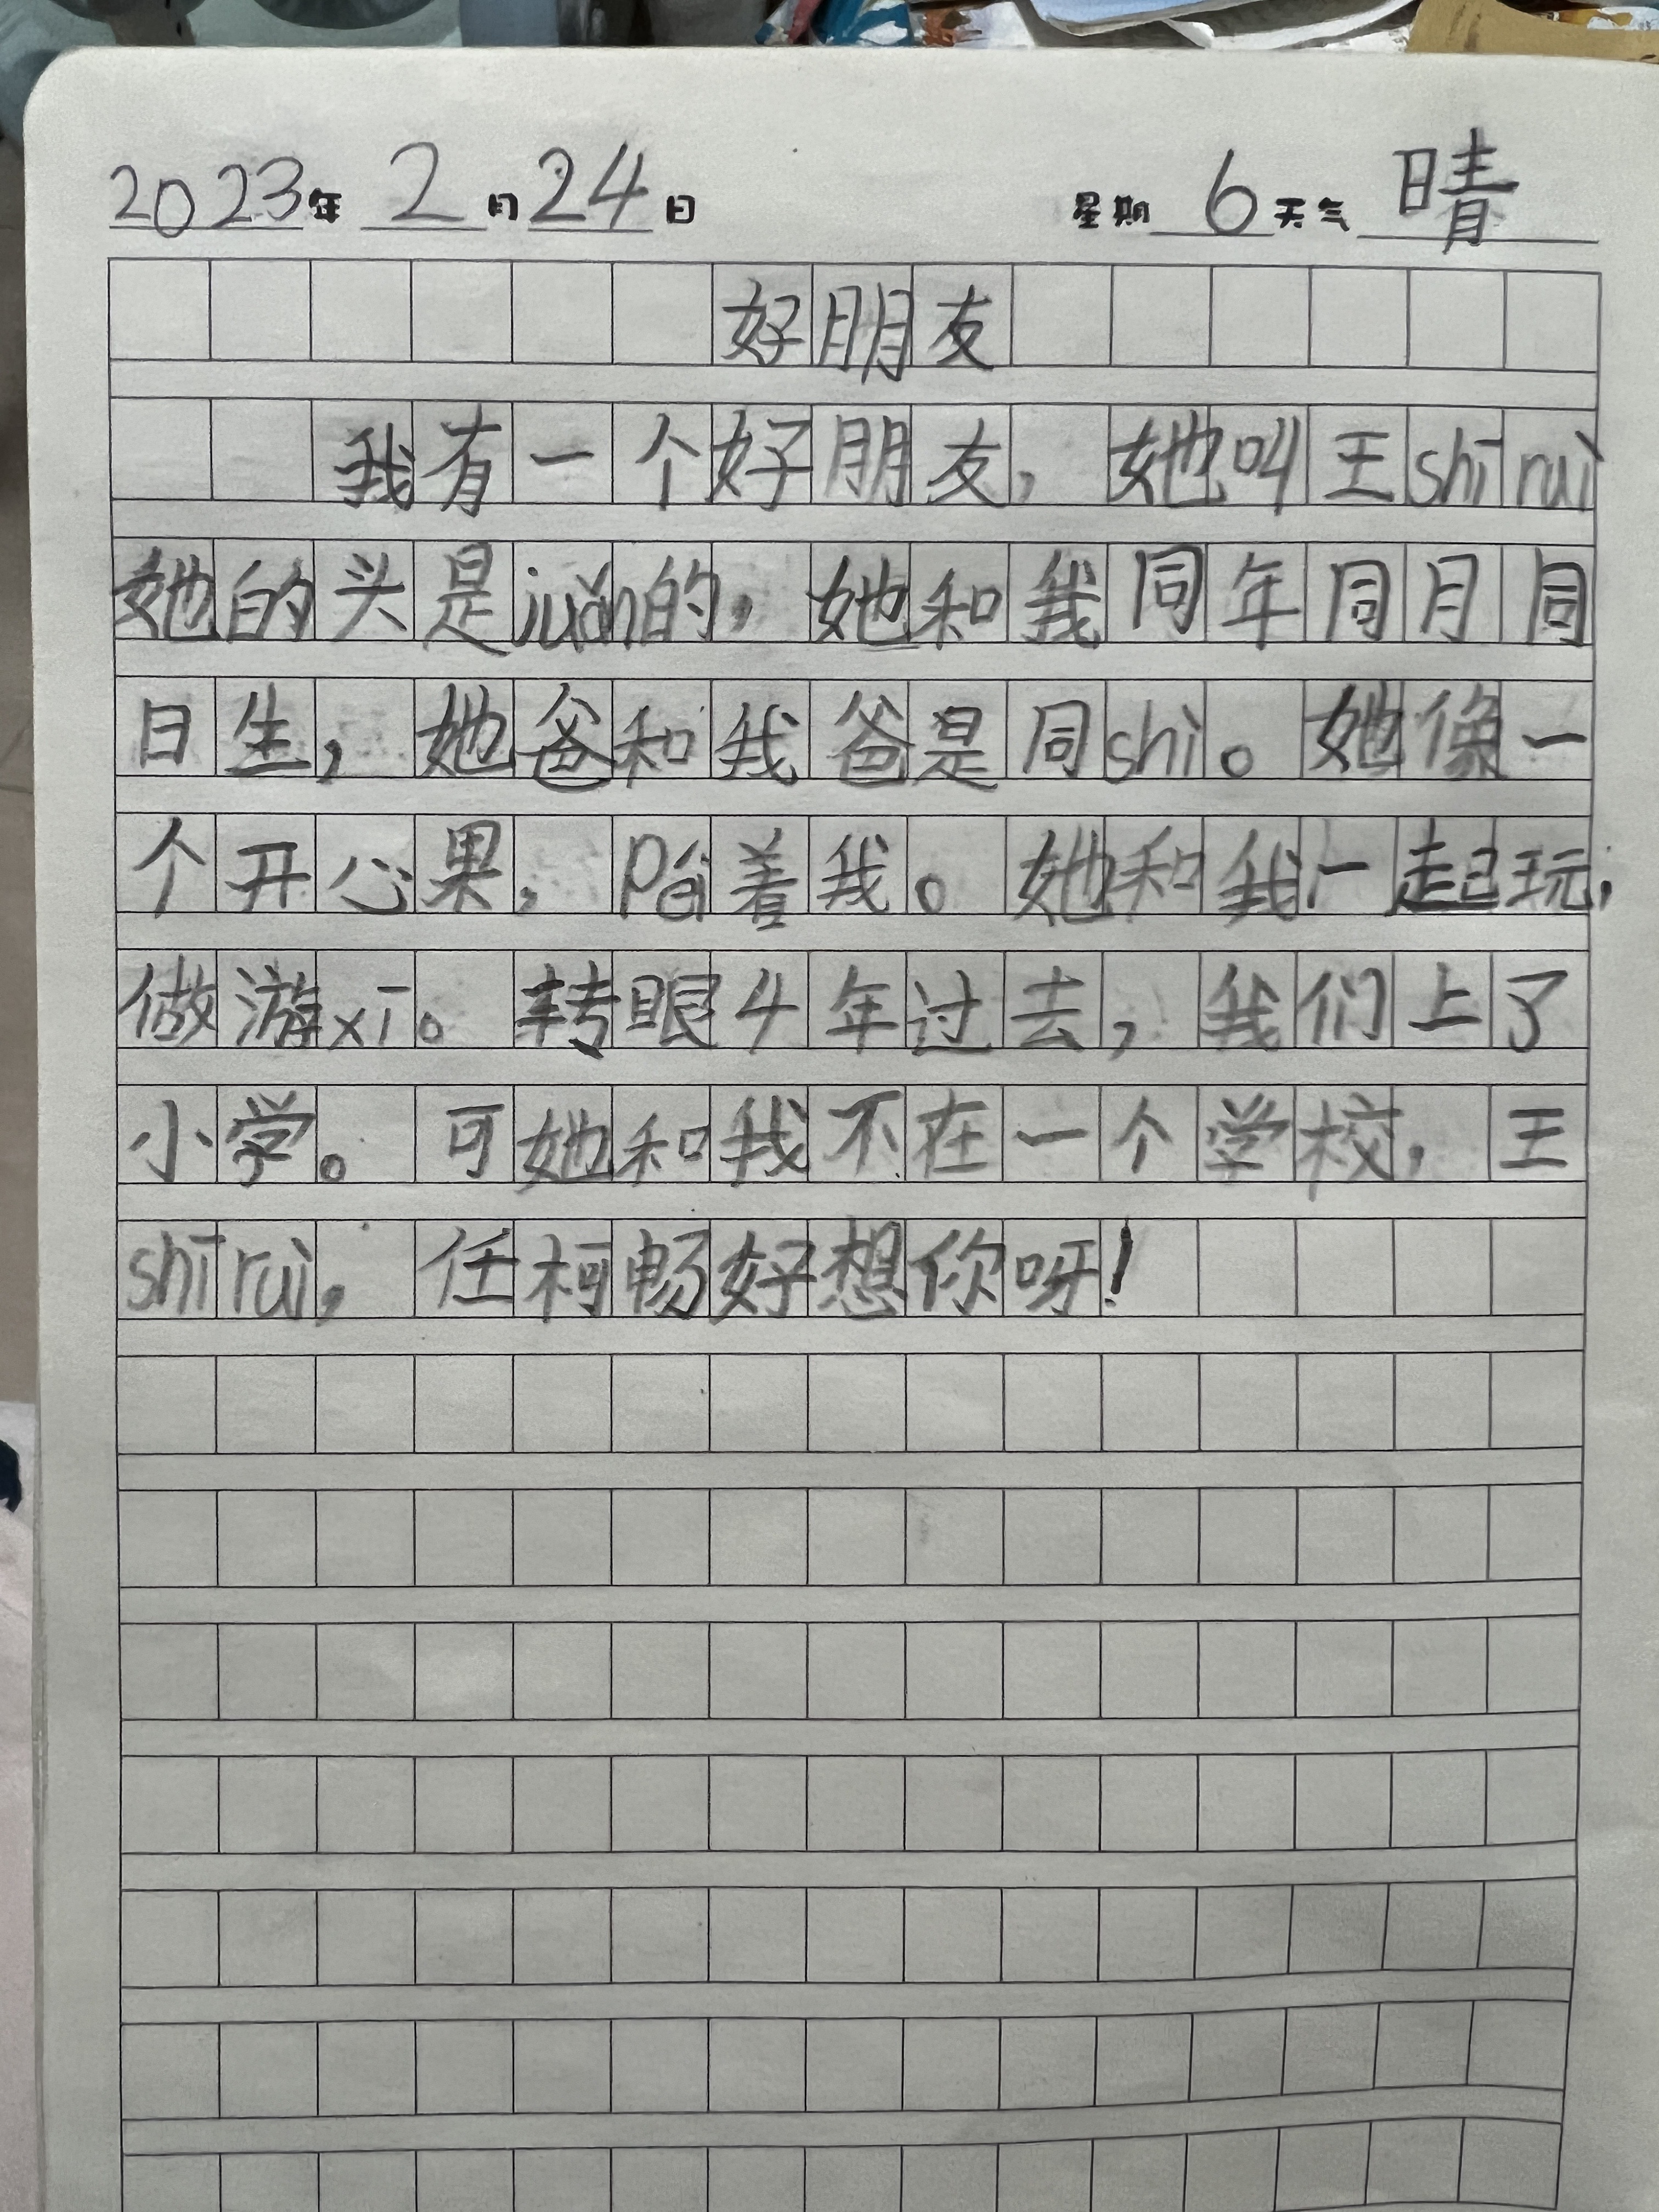 2023年 2月24日 星期 6 天气 晴
好朋友
我有一个好朋友，她叫王shī rui
她的头是juǎn的，她和我同年同月同
日生，她爸和我爸是同shì。她像一
个开心果，Péi着我。她和我一起玩，
做游xī。转眼4年过去，我们上了
小学。可她和我不在一个学校，王
shī rui，任柯畅好想你呀！